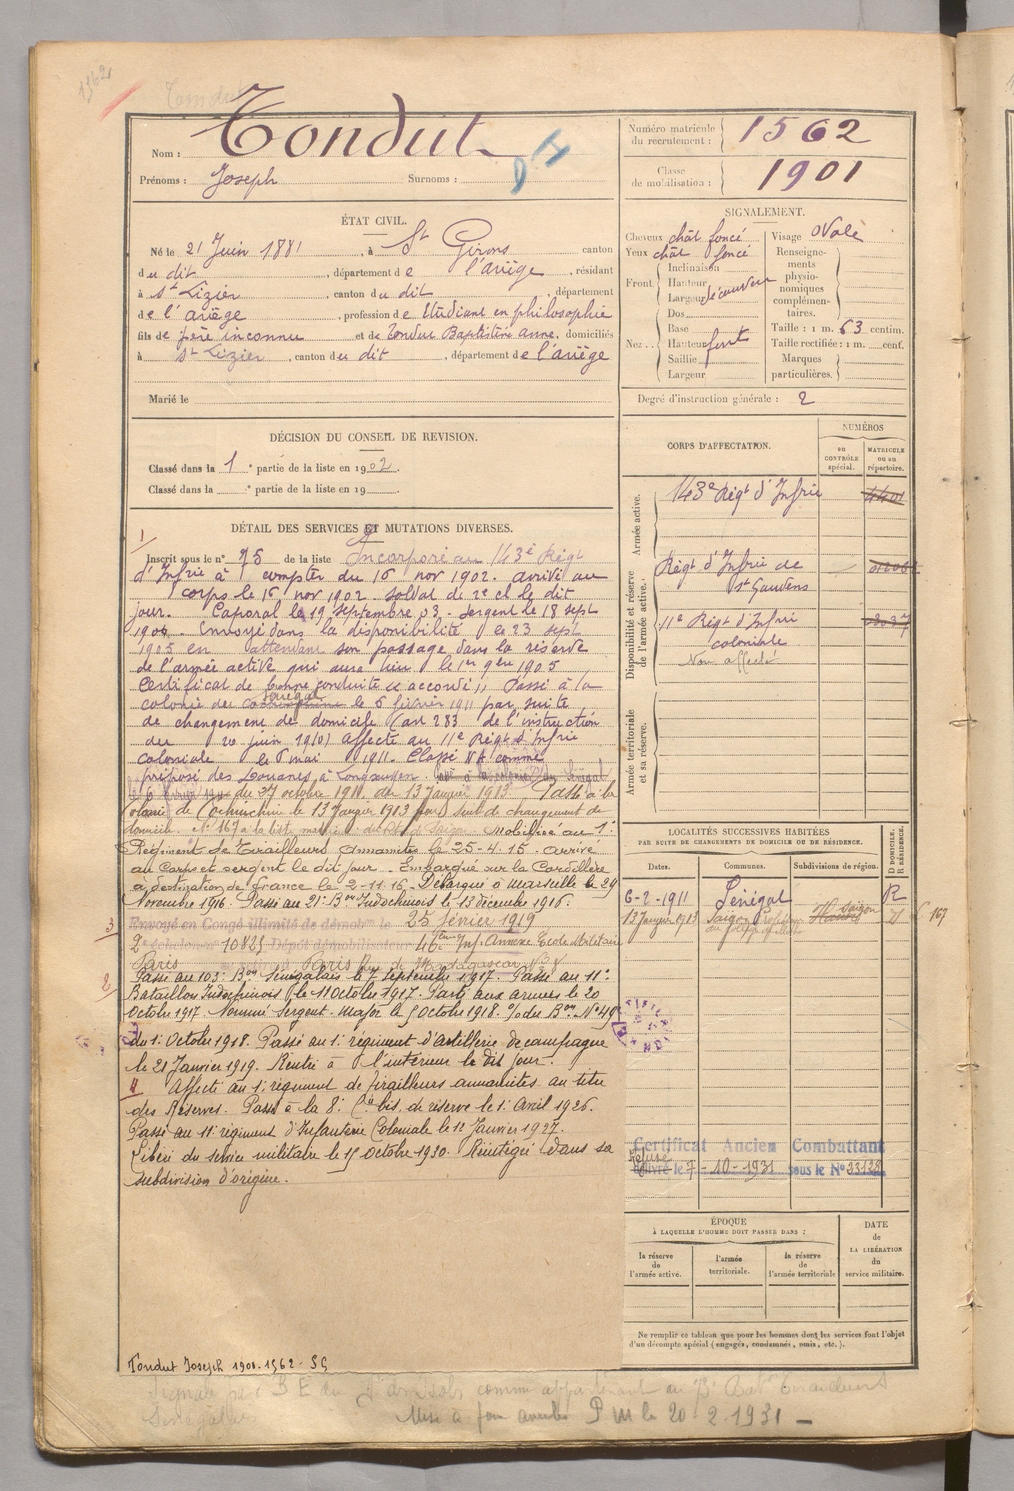 1562
Tondut
Nom : Tondut
Prénoms : Joseph Surnoms :
Numéro matricule du recrutement : 1562
Classe de mobilisation : 1901
ÉTAT CIVIL.
Né le 21 Juin 1881, à St Girons canton
du dit, département de l'ariège, résidant
à St Lizier, canton du dit, département
de l'ariège, profession de Etudiant en philosophie
fils de père inconnu et de Tondut Baptistine Anne, domiciliés
à St Lizier, canton du dit, département de l'ariège
Marié le
SIGNALEMENT.
Cheveux chât foncé Visage ovale
Yeux chât foncé
Front Inclinaison
Hauteur
Largeur découvert
Nez Dos
Base
Hauteur fort
Saillie
Largeur
Renseignements physionomiques complémentaires.
Taille : 1 m. 63 centim.
Taille rectifiée : 1 m. cent.
Marques particulières.
Degré d'instruction générale : 2
DÉCISION DU CONSEIL DE REVISION.
Classé dans la 1e partie de la liste en 1902.
Classé dans la e partie de la liste en 19
DÉTAIL DES SERVICES ET MUTATIONS DIVERSES.
1
Inscrit sous le n° 75 de la liste Incorporé au 143e Régt
d'Infrie à compter du 16 nov 1902. arrivé au
corps le 16 nov 1902. Soldat de 2e cl le dit
jour. Caporal le 19 septembre 03. Sergent le 18 sept
1904. Envoyé dans la disponibilité le 23 sept
1905 en attendant son passage dans la réserve
de l'armée active qui aura lieu le 1er 9bre 1905
Certificat de bonne conduite " accordé " Passé à la
colonie du Sénégal le 6 février 1911 par suite
de changement de domicile (art 283 de l'instruction
du 20 juin 1910) Affecté au 11e Régt d'Infrie
coloniale le 6 mai 1911. Classé NA comme
préposé des Douanes à Longxuyen.
du 27 octobre 1911 du 13 Janvier 1913. Passé à la
Colonie de Cochinchine le 13 Janvier 1913 par suite de changement de
domicile. N° 167 à la liste de Saigon. Mobilisé au 1er
Régiment de Tirailleurs Annamites le 25-4-15. Arrivé
au Corps et sergent le dit jour. Embarqué sur la Cordillère
à destination de France le 2-11-16. Débarqué à Marseille le 29
Novembre 1916. Passé au 21e Bon Indochinois le 13 décembre 1916.
3
Envoyé en Congé illimité de démobon le 25 février 1919
2e échelon n° 10825 Dépôt démobilisateur 46ème Inf. Annexe Ecole Militaire
Paris
Paris Rue de Madagascar N° 8
2
Passé au 103e Bon Sénégalais le 7 septembre 1917. Passé au 11e
Bataillon Indochinois le 11 Octobre 1917. Parti aux armées le 20
Octobre 1917. Nommé Sergent-Major le 5 Octobre 1918. O/ du Bon N° 49
du 1er Octobre 1918. Passé au 1er régiment d'Artillerie de campagne
le 21 Janvier 1919. Rentré à l'intérieur le dit jour.
4 Affecté au 1er régiment de tirailleurs annamites au titre
des Réserves. Passé à la 8e Cie bis. de réserve le 1er Avril 1926.
Passé au 11e régiment d'Infanterie Coloniale le 12 Janvier 1927.
Libéré du service militaire le 15 octobre 1930. Réintégré dans sa
subdivision d'origine.
CORPS D'AFFECTATION.
NUMÉROS
au CONTRÔLE spécial.
MATRICULE ou au répertoire.
Armée active.
143e Régt d'Infrie
Disponibilité et réserve de l'armée active.
Régt d'Infrie de
St Gaudens
11e Régt d'Infrie
coloniale
Non affecté
Armée territoriale et sa réserve.
LOCALITÉS SUCCESSIVES HABITÉES
PAR SUITE DE CHANGEMENTS DE DOMICILE OU DE RÉSIDENCE.
D DOMICILE. R RÉSIDENCE.
Dates. Communes. Subdivisions de région.
6-2-1911 Sénégal R
13 Janvier 1913 Saigon Saigon 167
Certificat Ancien Combattant
Refusé
Délivré le 7-10-1931 sous le N° 23128
ÉPOQUE
À LAQUELLE L'HOMME DOIT PASSER DANS :
la réserve de l'armée active.
l'armée territoriale.
la réserve de l'armée territoriale
DATE de LA LIBÉRATION du service militaire.
Ne remplir ce tableau que pour les hommes dont les services font l'objet
d'un décompte spécial (engagés, condamnés, omis, etc.).
Tondut Joseph 1901-1562-SG
Signalé par B E comme appartenant au Baton Tirailleurs
Sénégalais
Mise à jour P M le 20-2-1931